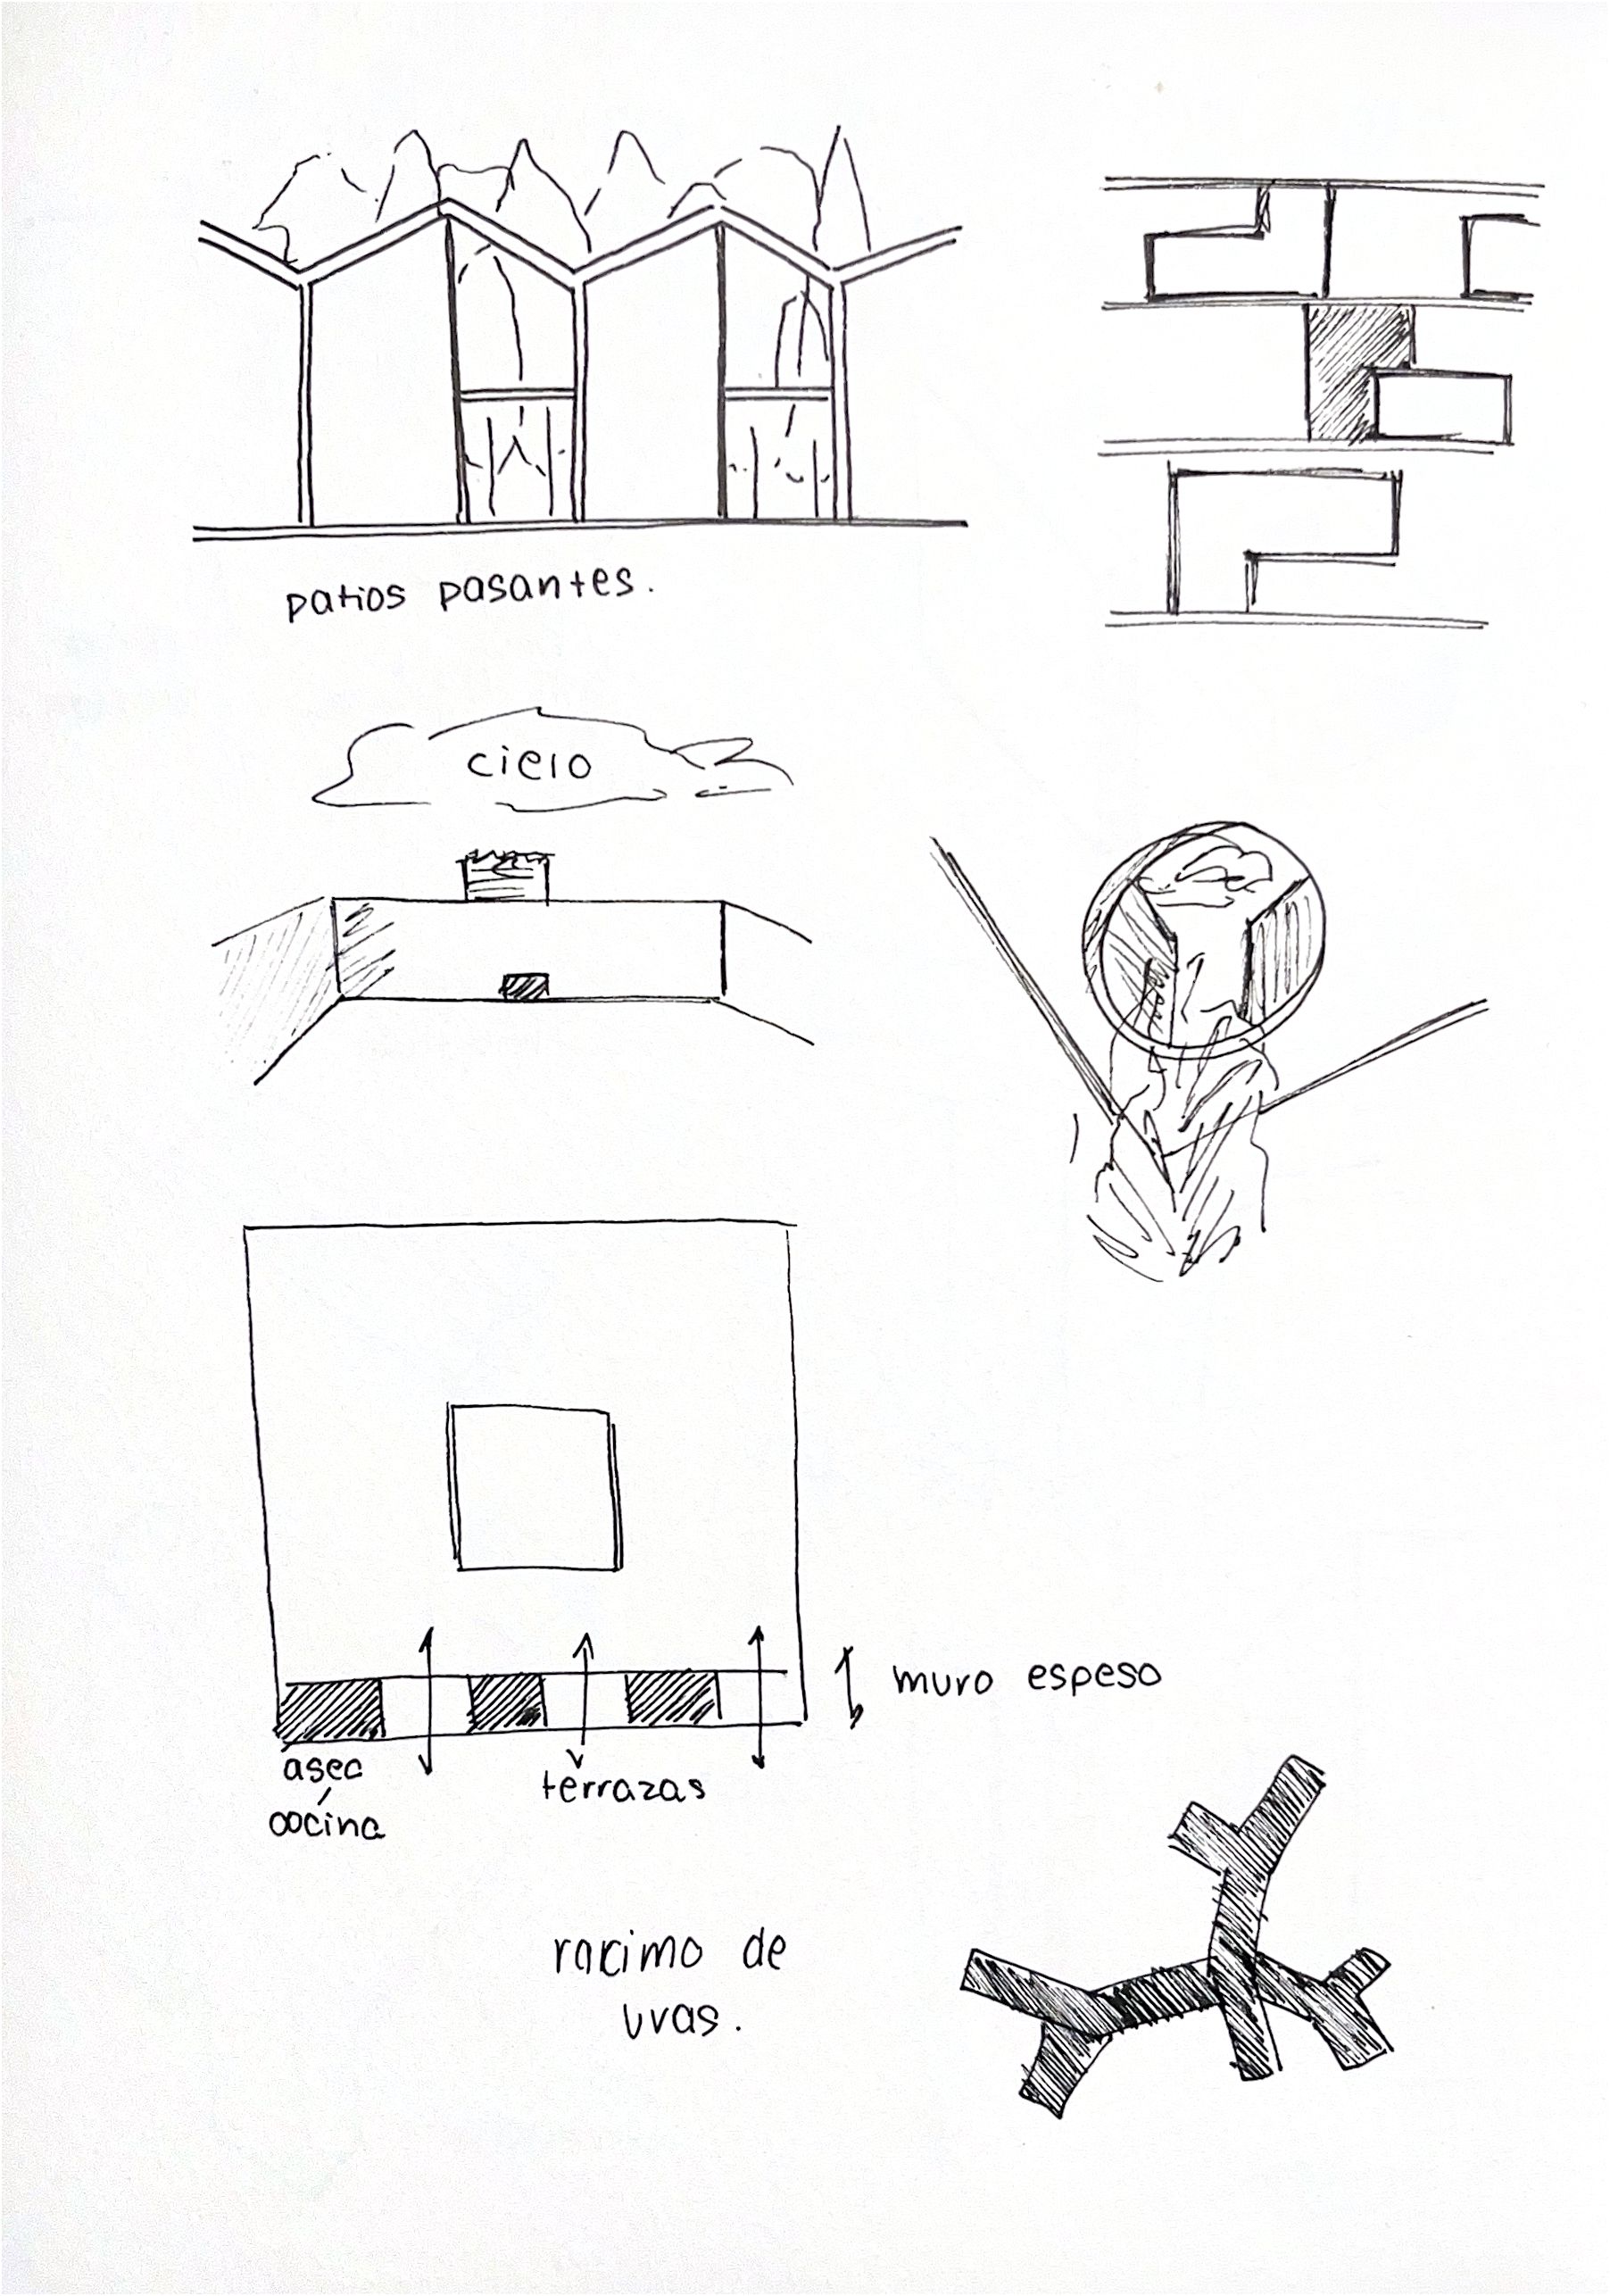 patios pasantes.
cielo
muro espeso
aseo
cocina
terrazas
racimo de
uvas.